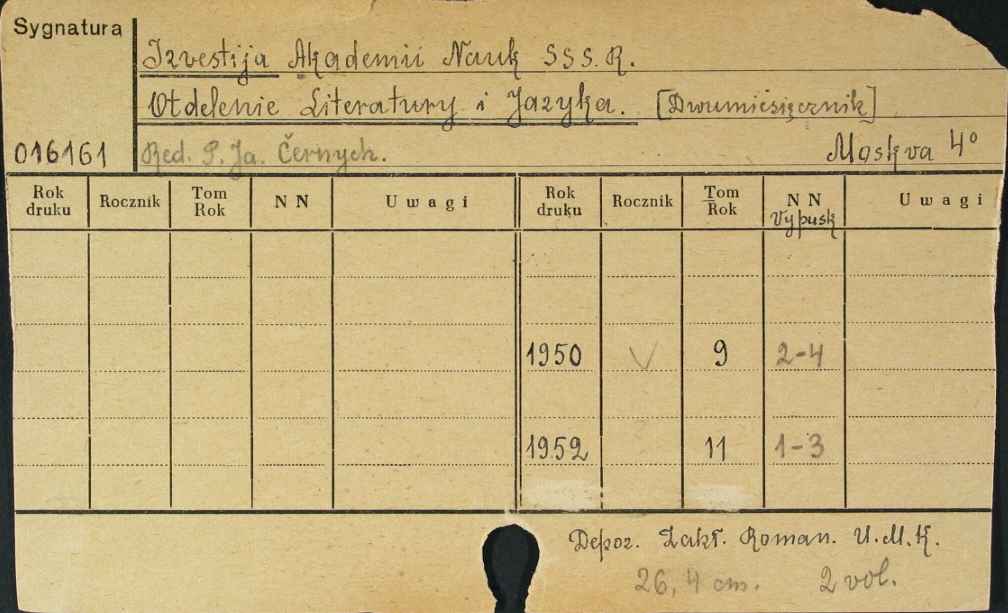 Sygnatura
Izvestija Akademii Nauk SSS.R.
Otdelenie Literatury i Jazyka. [Dwumiesięcznik]
016161 Red. P. Ja. Černych. Moskva 4°
Rok druku Rocznik Tom Rok N N Uwagi Rok druku Rocznik Tom Rok N N Vypusk Uwagi
1950 V 9 2-4
1952 11 1-3
Depoz. Zakł. Roman. U.M.K.
26,4 cm. 2 vol.